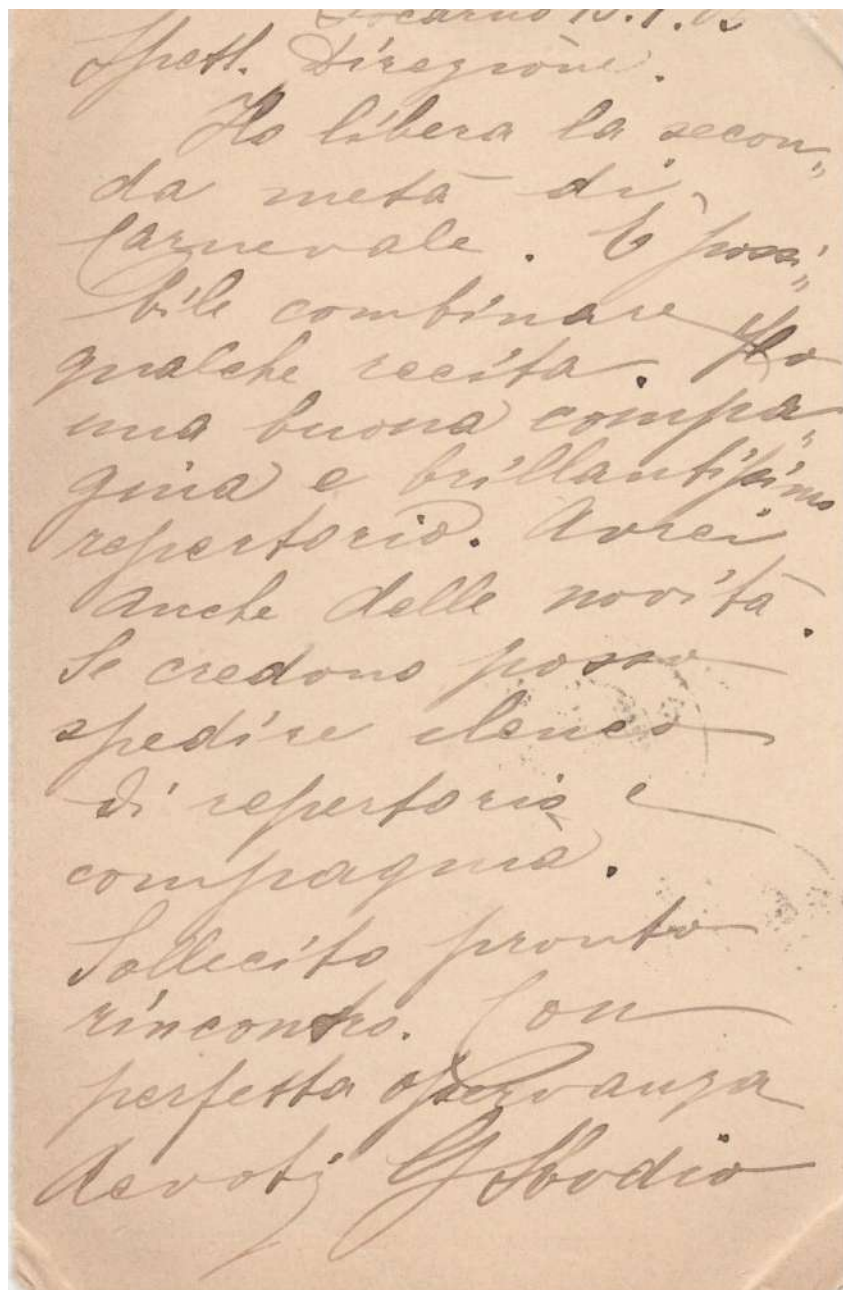 Locarno 15.1.02
Spett. Direzione.
Ho libera la secon„
da metà di
Carnevale. È possi„
bile combinare
qualche recita. Ho
una buona compa„
gnia e brillantissimo
repertorio. Avrei
anche delle novità.
Se credono posso
spedire elenco
di repertorio e
compagnia.
Sollecito pronto
rincontro. Con
perfetta osservanza
devot